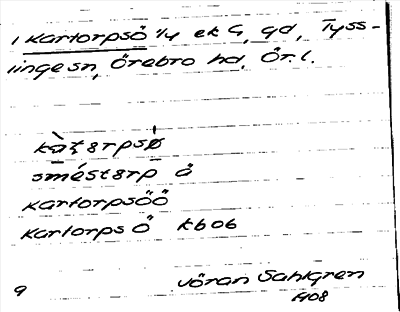 1 Kartorpsö 1/4 ek G, gd, Tyss-
linge sn, Örebro hd, Ör. l.
smésterp å
Kartorpsöö
Kartorps Ö kb06
9
Jöran Sahlgren
1908